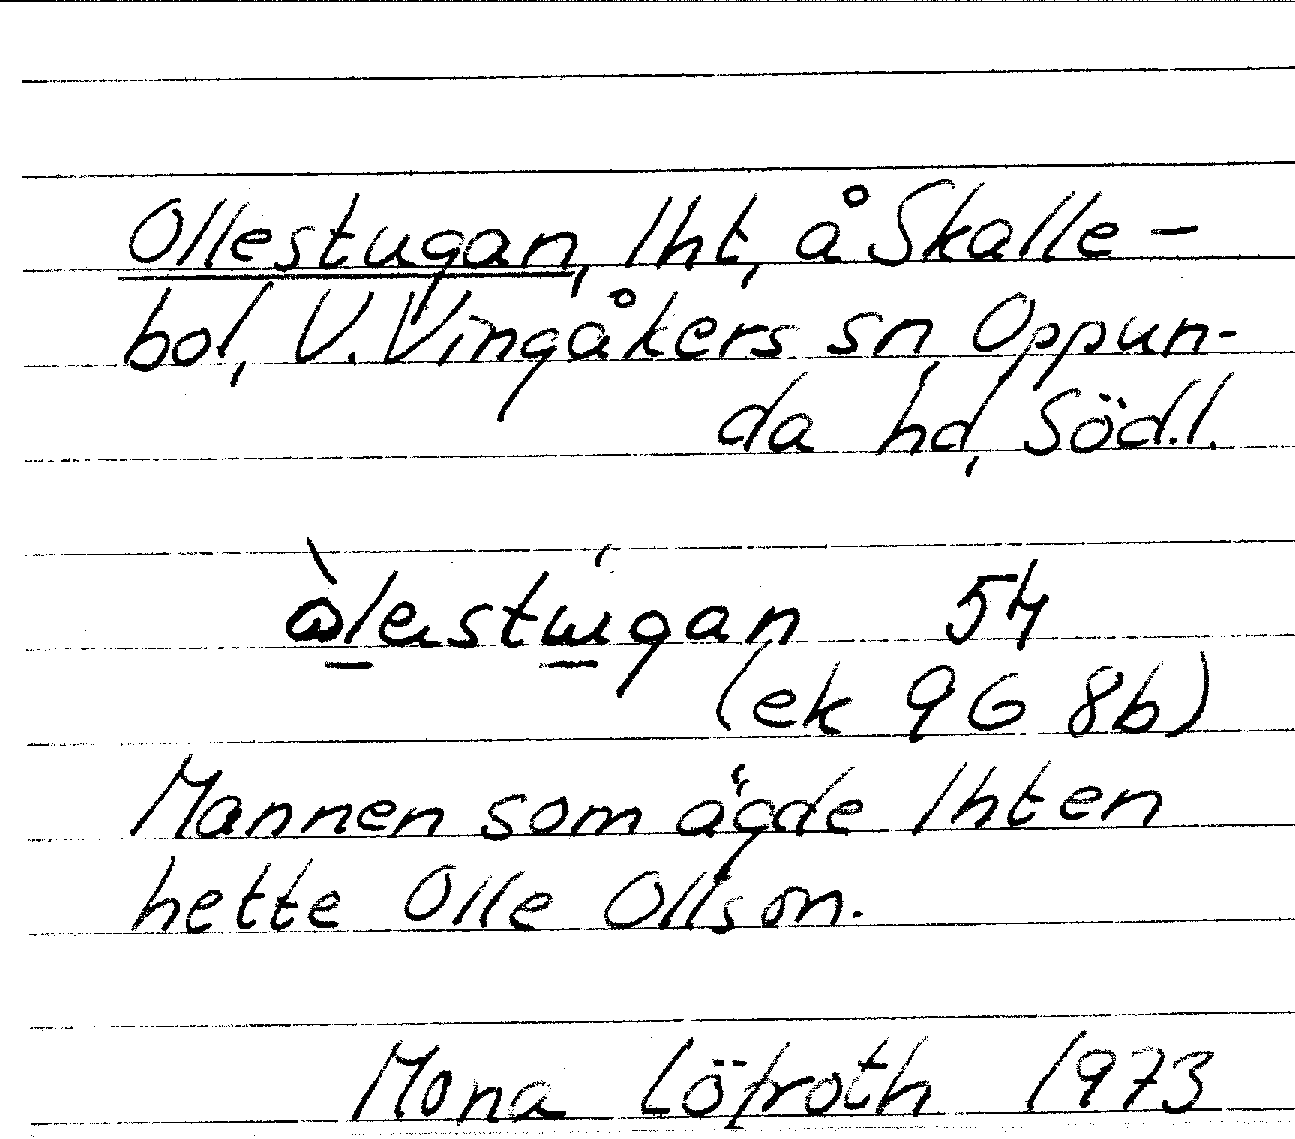 Ollestugan, lht, å Skalle-
bol, V. Vingåkers sn, Oppun-
da hd, Södl.
òlestugan 54
(ek 9G 8b)
Mannen som ägde lhten
hette Olle Ollson.
Mona Löfroth 1973